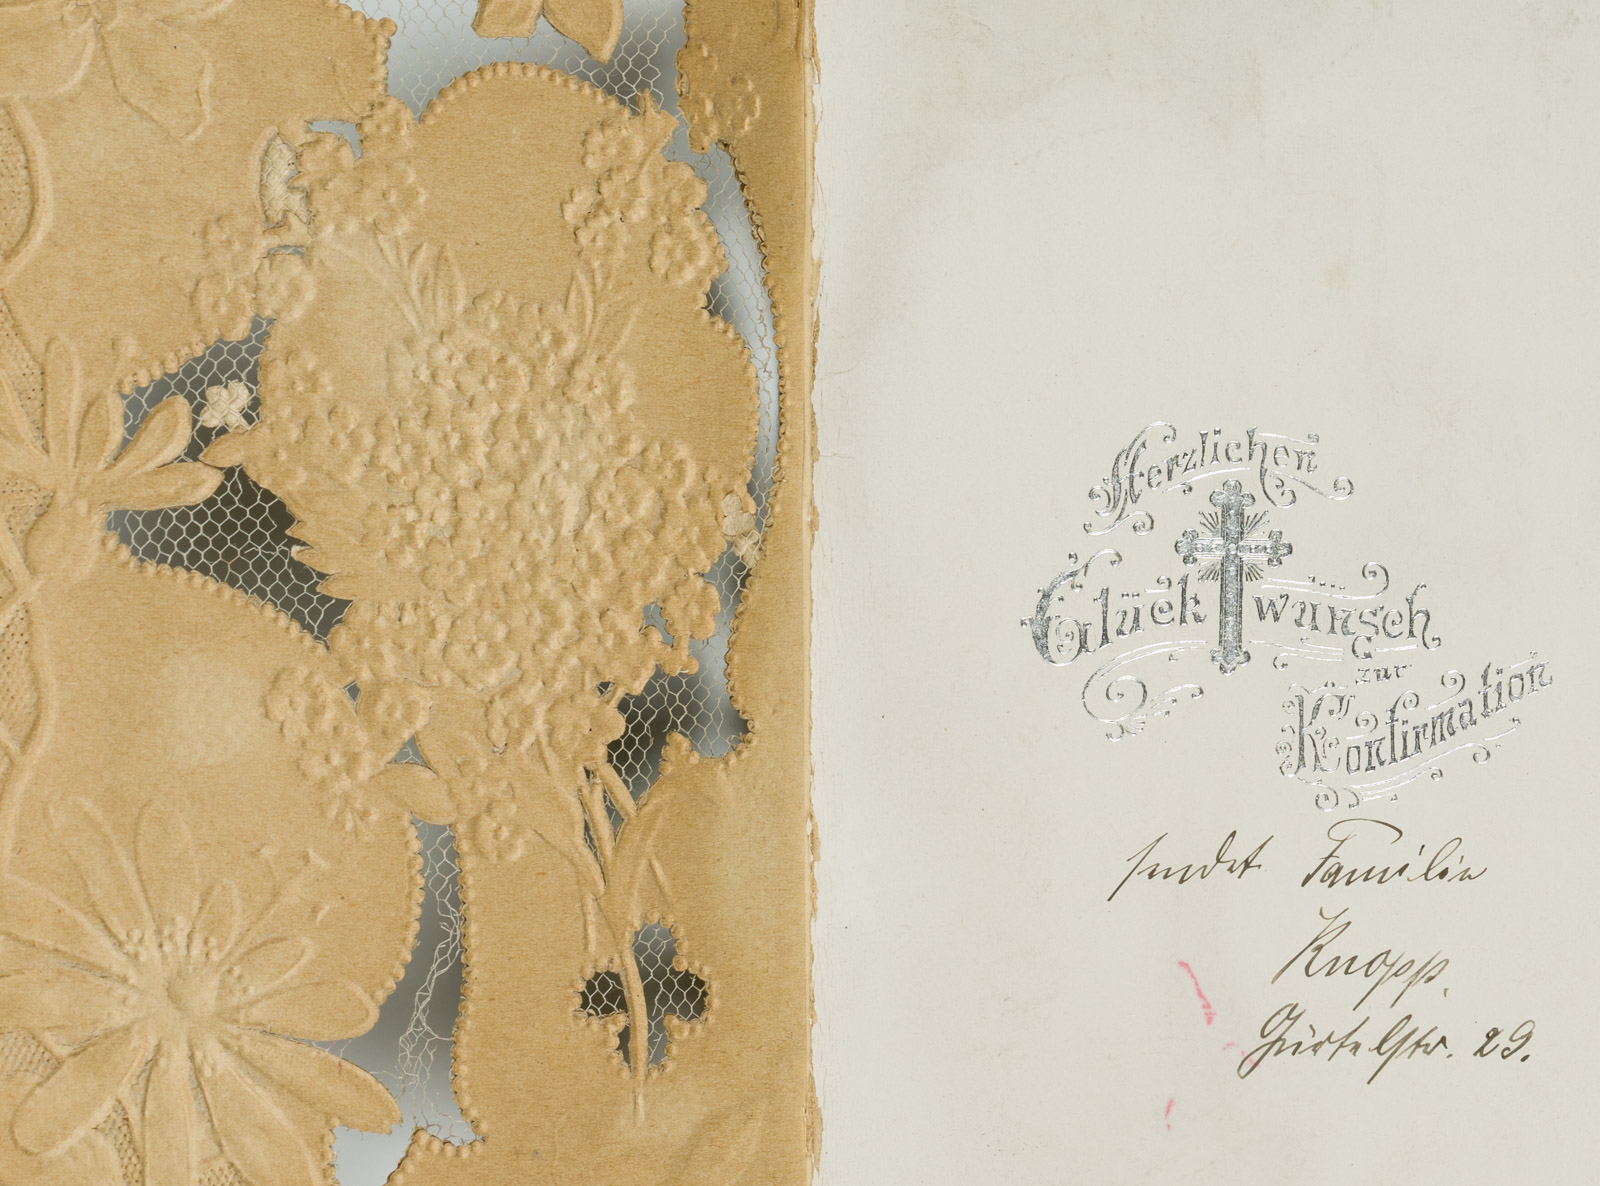 Herzlichen
Glückwunsch
zur
Konfirmation
sendet Familie
Knopp.
Gürtelstr. 29.